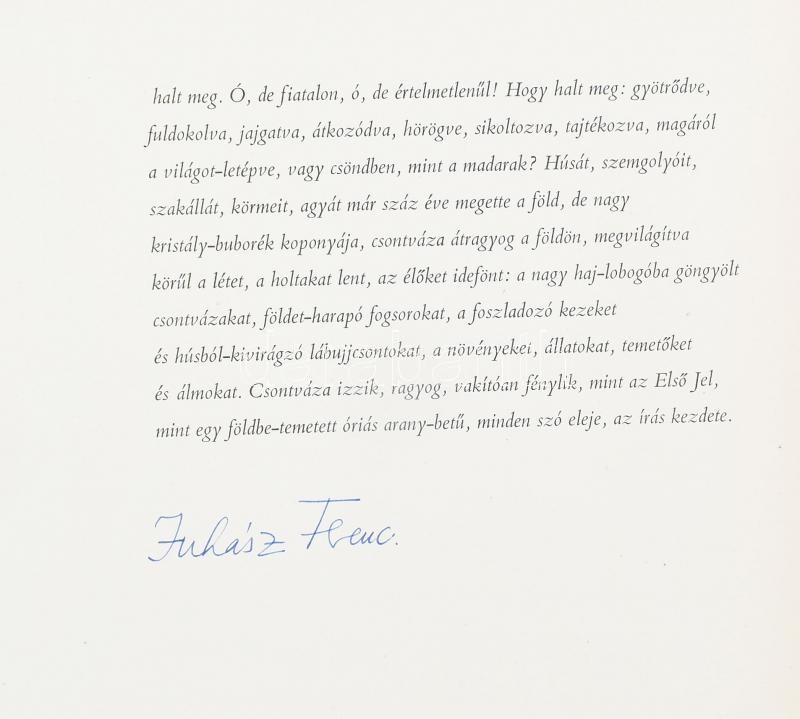 halt meg. Ó, de fiatalon, ó, de értelmetlenűl! Hogy halt meg: gyötrődve,
fuldokolva, jajgatva, átkozódva, hörögve, sikoltozva, tajtékozva, magáról
a világot-letépve, vagy csöndben, mint a madarak? Húsát, szemgolyóit,
szakállát, körmeit, agyát már száz éve megette a föld, de nagy
kristály-buborék koponyája, csontváza átragyog a földön, megvilágítva
körűl a létet, a holtakat lent, az élőket idefönt: a nagy haj-lobogóba göngyölt
csontvázakat, földet-harapó fogsorokat, a foszladozó kezeket
és húsból-kivirágzó lábujjcsontokat, a növényeket, állatokat, temetőket
és álmokat. Csontváza izzik, ragyog, vakítóan fénylik, mint az Első Jel,
mint egy földbe-temetett óriás arany-betű, minden szó eleje, az írás kezdete.
Juhász Ferenc.